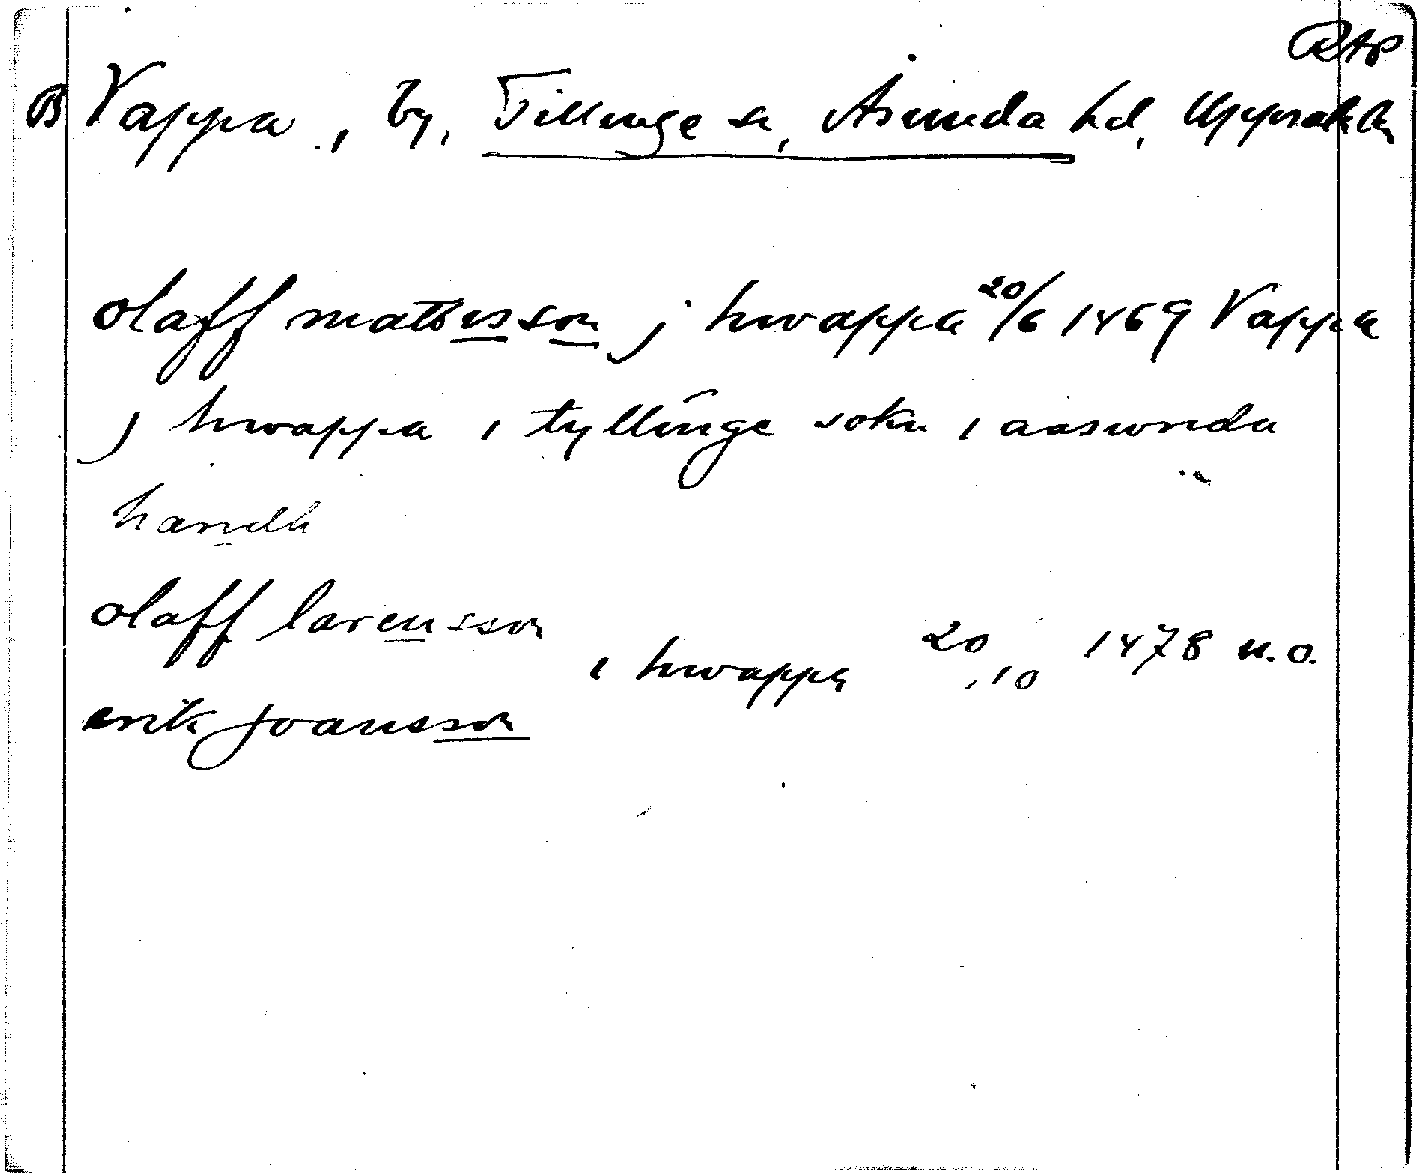 RAP
B Vappa, by, Tillinge sn, Åsunda hd, Uppsala län
olaff mattisson j hwappa 20/6 1469 Vappa
j hwappa i tyllinge sokn i aasunda
handh
olaff larensson
i hwappa 20/10 1478 u.o.
erik joansson